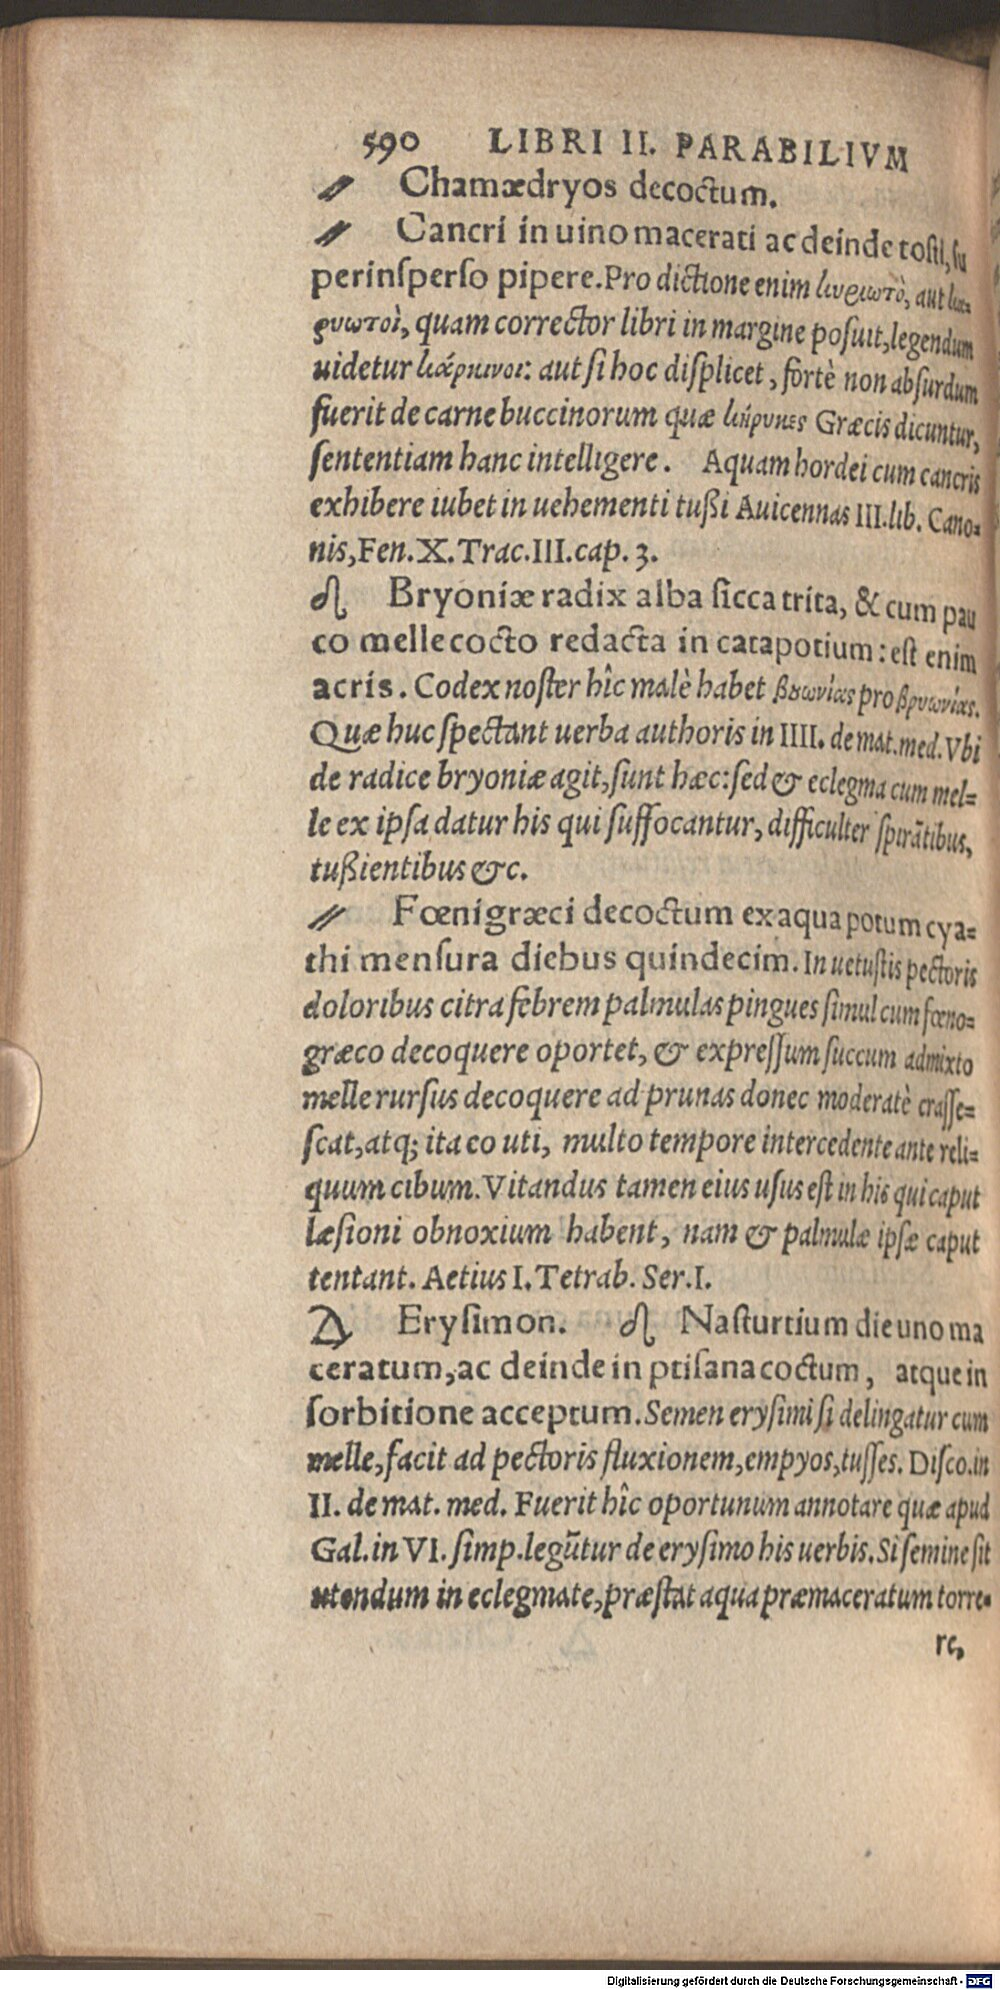 590 LIBRI II. PARABILIVM
Chamædryos decoctum.
Cancri in uino macerati ac deinde tosti, su
perinsperso pipere. Pro dictione enim κυριωτὸ, aut κα-
ρυωτοὶ, quam corrector libri in margine posuit, legendum
uidetur κάρκινοι: aut si hoc displicet, fortè non absurdum
fuerit de carne buccinorum quæ κήρυκες Græcis dicuntur,
sententiam hanc intelligere. Aquam hordei cum cancris
exhibere iubet in uehementi tußi Auicennas III. lib. Cano-
nis, Fen. X. Trac. III. cap. 3.
Bryoniæ radix alba sicca trita, & cum pau
co melle cocto redacta in catapotium: est enim
acris. Codex noster hîc malè habet βουωνίας pro βρυωνίας.
Quæ huc spectant uerba authoris in IIII. de mat. med. Vbi
de radice bryoniæ agit, sunt hæc: sed & eclegma cum mel-
le ex ipsa datur his qui suffocantur, difficulter spirãtibus,
tußientibus &c.
Fœnigræci decoctum ex aqua potum cya-
thi mensura diebus quindecim. In uetustis pectoris
doloribus citra febrem palmulas pingues simul cum fœno-
græco decoquere oportet, & expressum succum admixto
melle rursus decoquere ad prunas donec moderatè crasse-
scat, atq; ita eo uti, multo tempore intercedente ante reli-
quum cibum. Vitandus tamen eius usus est in his qui caput
læsioni obnoxium habent, nam & palmulæ ipsæ caput
tentant. Aetius I. Tetrab. Ser. I.
Erysimon. Nasturtium die uno ma
ceratum, ac deinde in ptisana coctum, atque in
sorbitione acceptum. Semen erysimi si delingatur cum
melle, facit ad pectoris fluxionem, empyos, tusses. Disco. in
II. de mat. med. Fuerit hîc oportunum annotare quæ apud
Gal. in VI. simp. legũtur de erysimo his uerbis. Si semine sit
utendum in eclegmate, præstat aqua præmaceratum torre-
re,
Digitalisierung gefördert durch die Deutsche Forschungsgemeinschaft - DFG